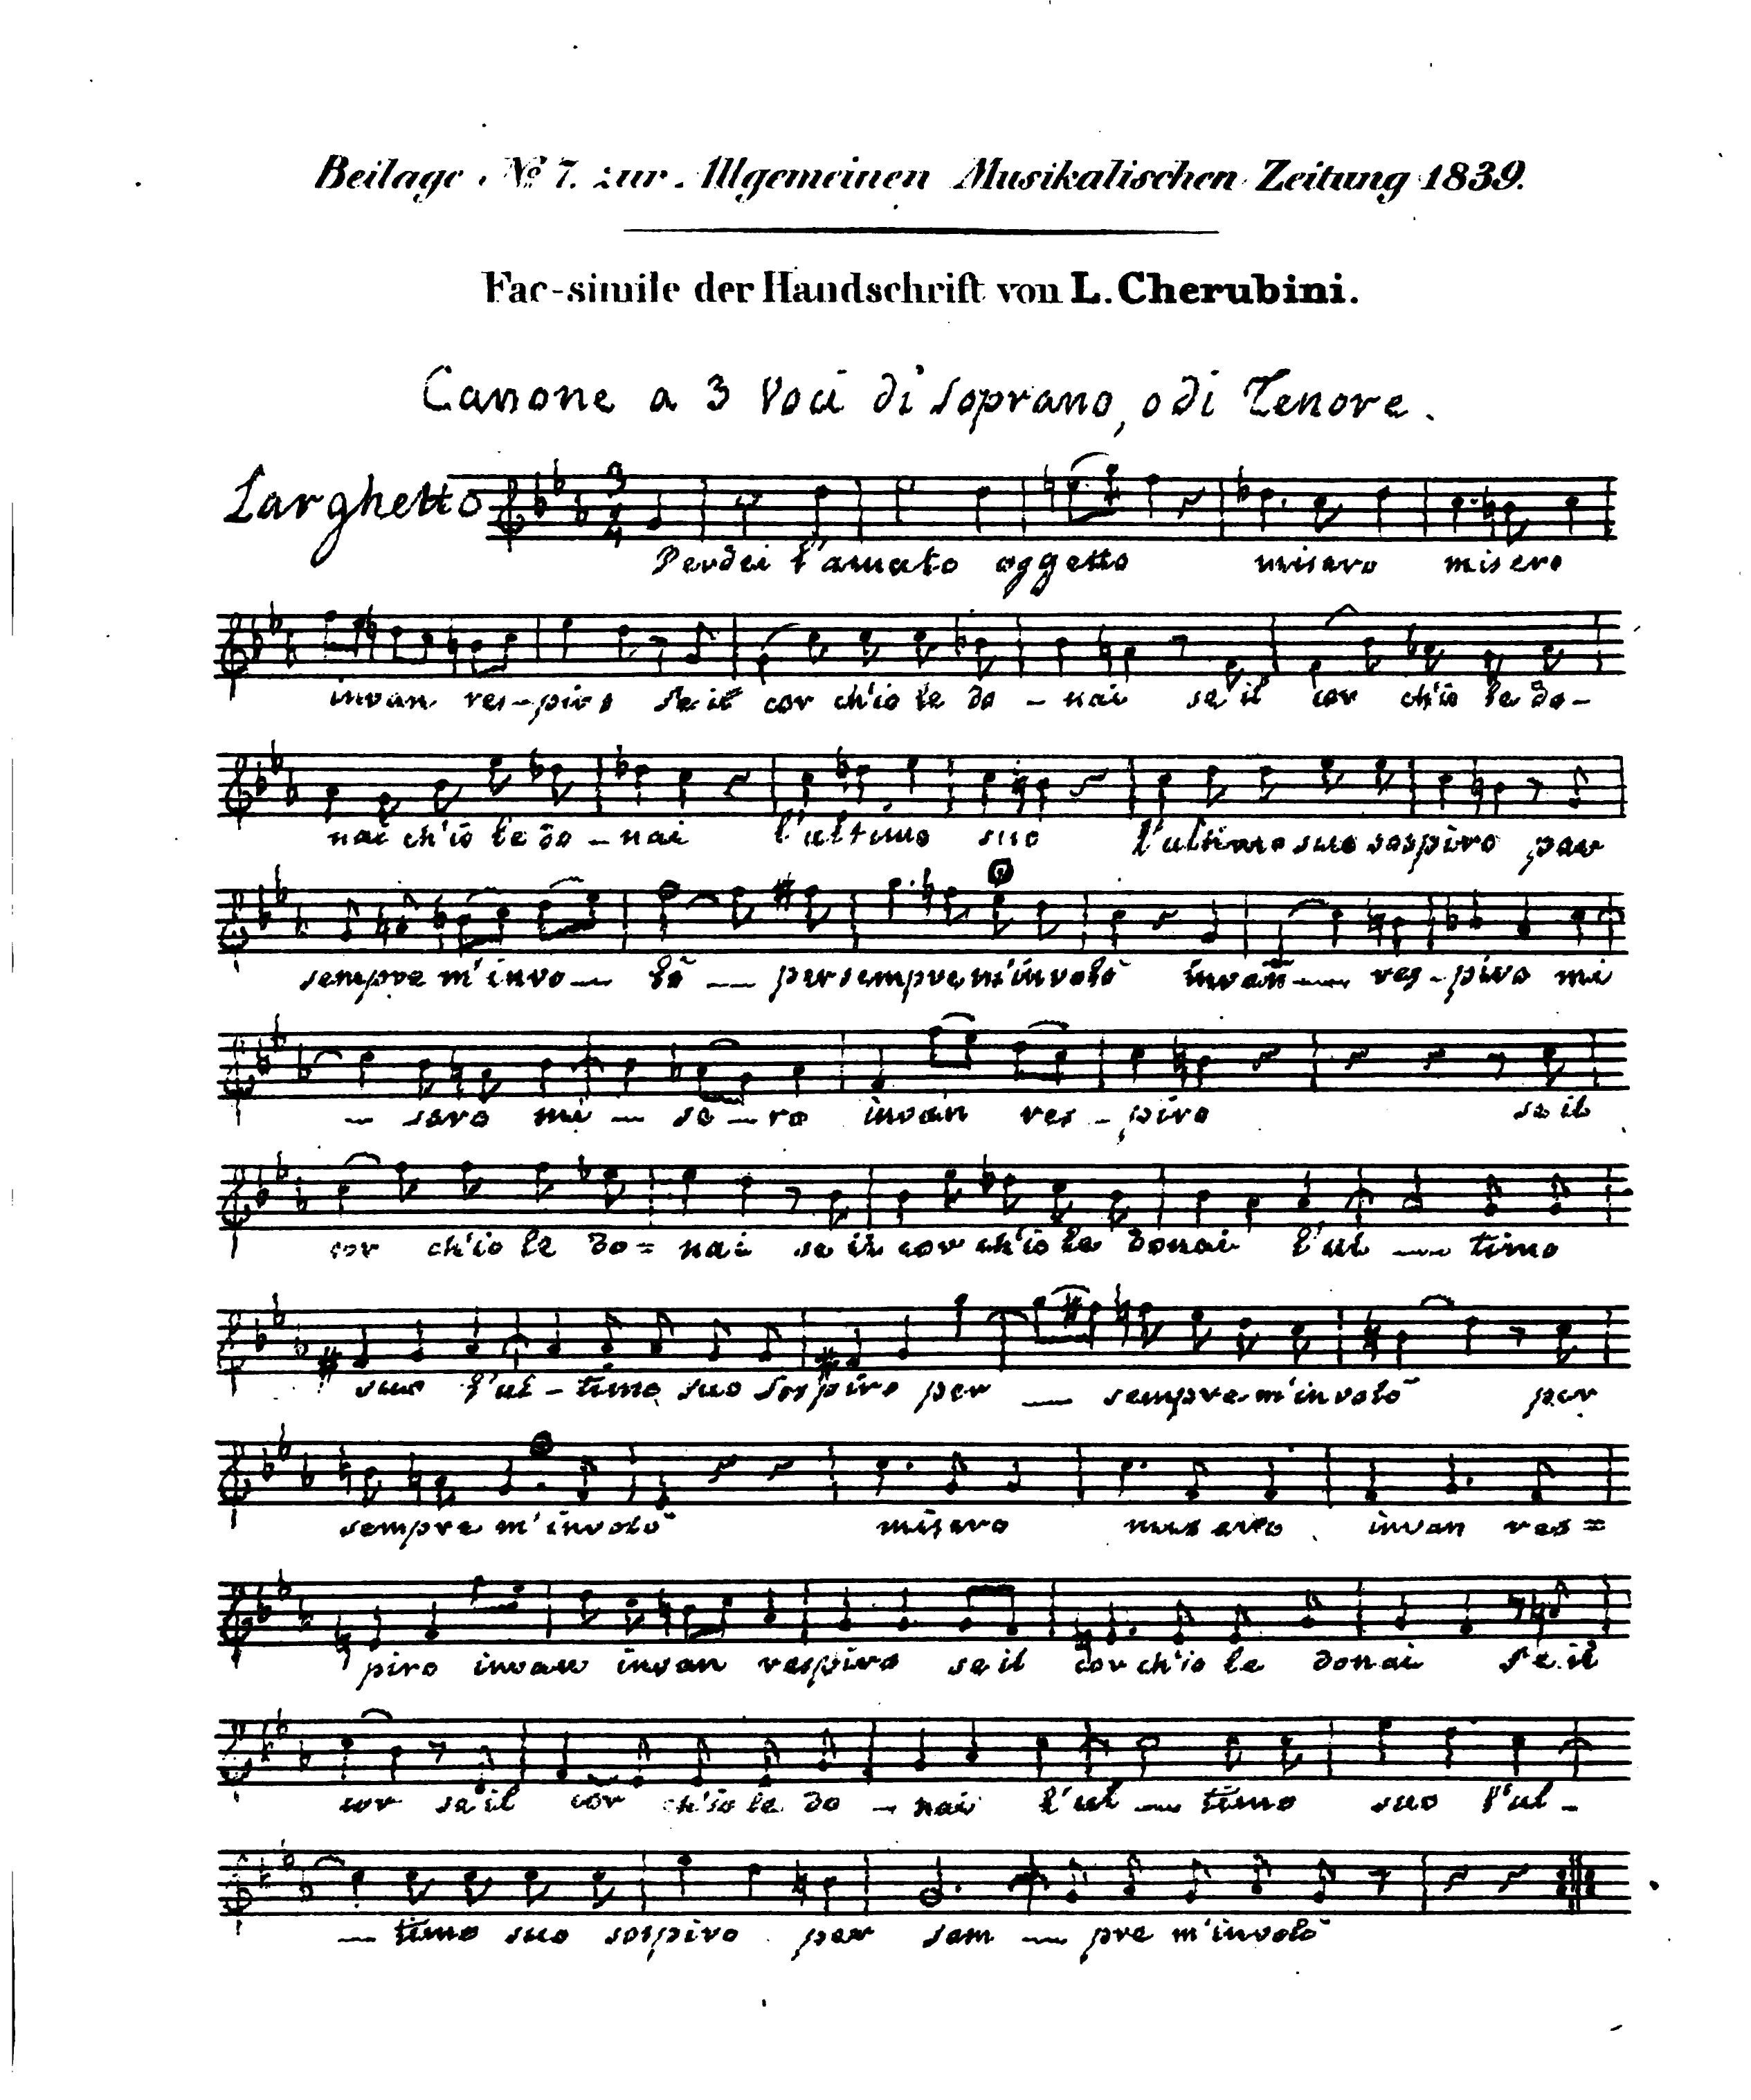 Beilage N.º 7. zur Allgemeinen Musikalischen Zeitung 1839.
Fac-simile der Handschrift von L. Cherubini.
Canone a 3 Voci di Soprano, o di Tenore.
Larghetto
3
4
Perdei l'amato oggetto misero misero
invan res-piro se il cor ch'io le do - nai se il cor ch'io le do-
nai ch'io le do - nai l'ultimo suo l'ultimo suo sospiro per
sempre m'invo — lò — per sempre m'involò invan — res - piro mi
— sero mi — se — ro invan res - piro se il
cor ch'io le do = nai se il cor ch'io le donai l'ul — timo
suo l'ul - timo suo sospiro per — sempre m'involò per
sempre m'involò misero misero invan res =
piro invan invan respiro se il cor ch'io le donai se il
cor se il cor ch'io le do - nai l'ul — timo suo l'ul -
— timo suo sospiro per sem — pre m'involò